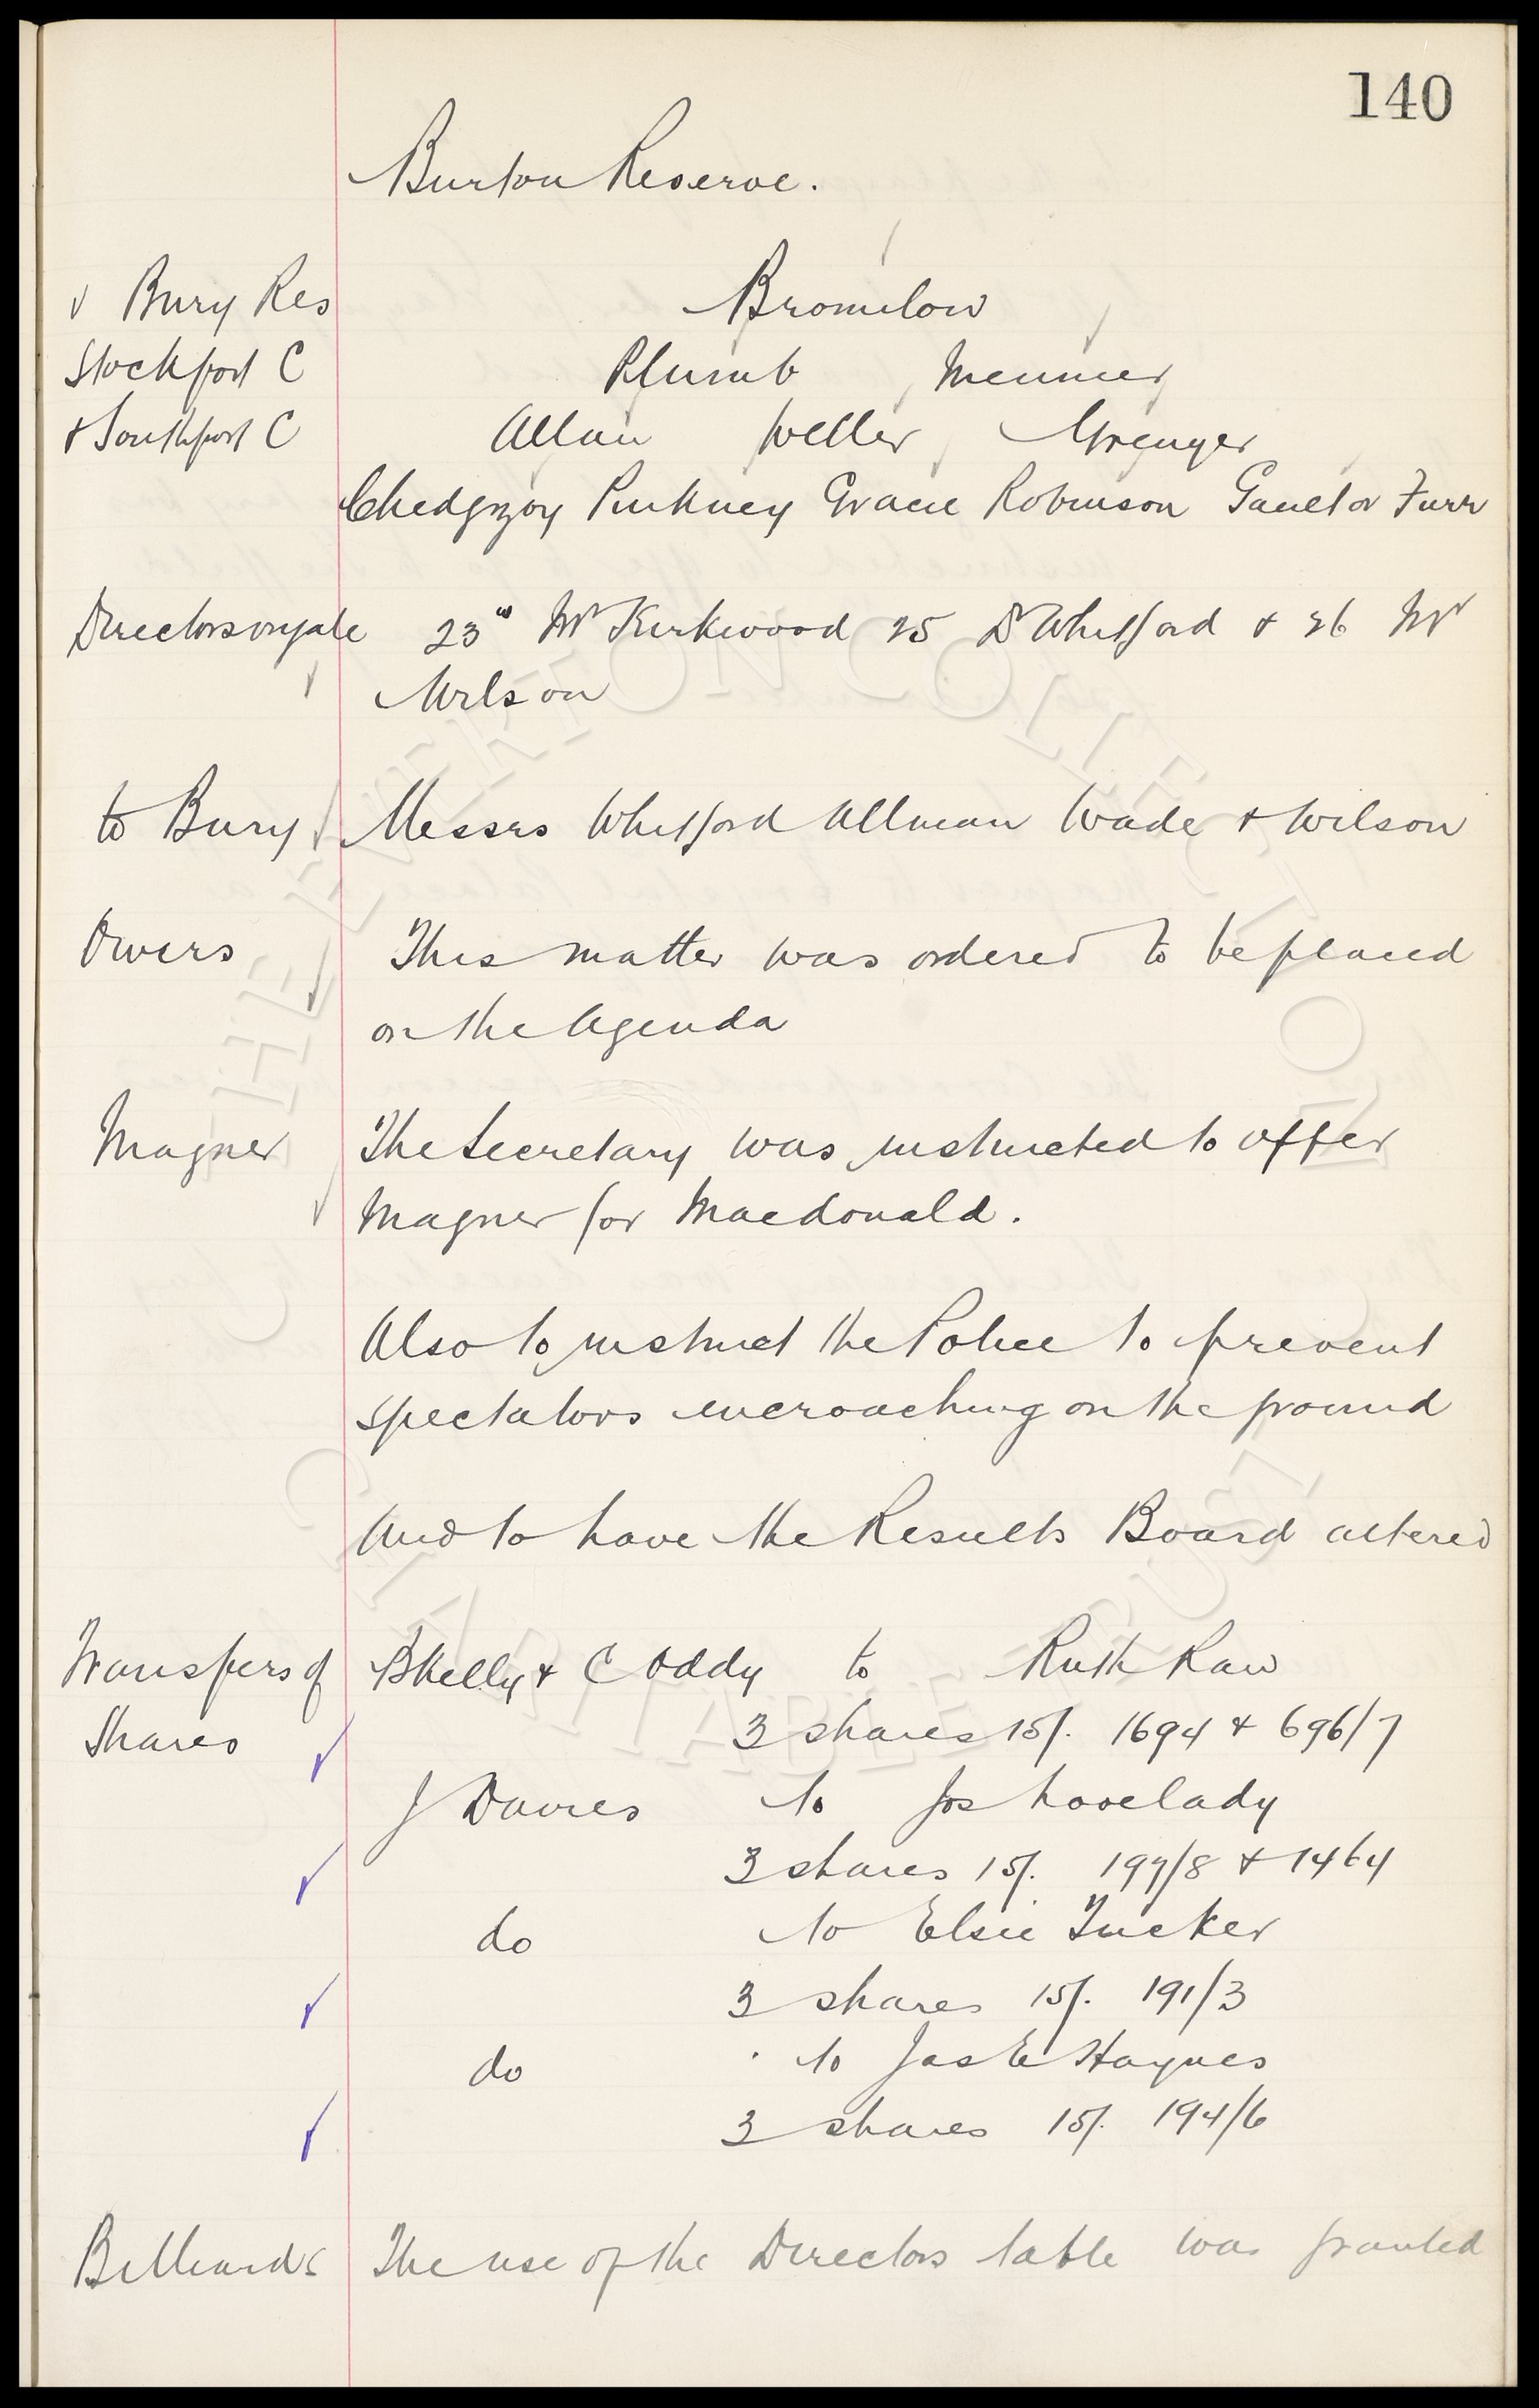 140
Burton Reserve.
v Bury Res Bromilow
Stockport C Plumb Meunier
& Southport C Allan Weller Grenyer
Chedgzoy Pinkney Gracie Robinson Gault or Furr
Directors on gate 23rd Mr Kirkwood 25 Dr Whitford & 26 Mr
Wilson
to Bury Messrs Whitford Allman Wade & Wilson
Owers This matter was ordered to be placed
on the Agenda
Magner The Secretary was instructed to offer
Magner for Macdonald.
Also to instruct the Police to prevent
spectators encroaching on the ground
And to have the Results Board altered
Transfers of B Kelly & C Oddy to Ruth Raw
Shares 3 shares 15/. 1694 & 696/7
J Davies to Jos Lovelady
3 shares 15/. 197/8 & 1464
do to Elsie Tucker
3 shares 15/. 191/3
do to Jas E Haynes
3 shares 15/. 194/6
Billiards The use of the Directors table was granted